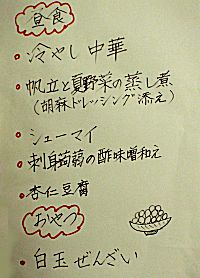 昼食
• 冷やし中華
• 帆立と夏野菜の蒸し煮
(胡麻ドレッシング添え)
• シューマイ
• 刺身蒟蒻の酢味噌和え
• 杏仁豆腐
おやつ
• 白玉ぜんざい